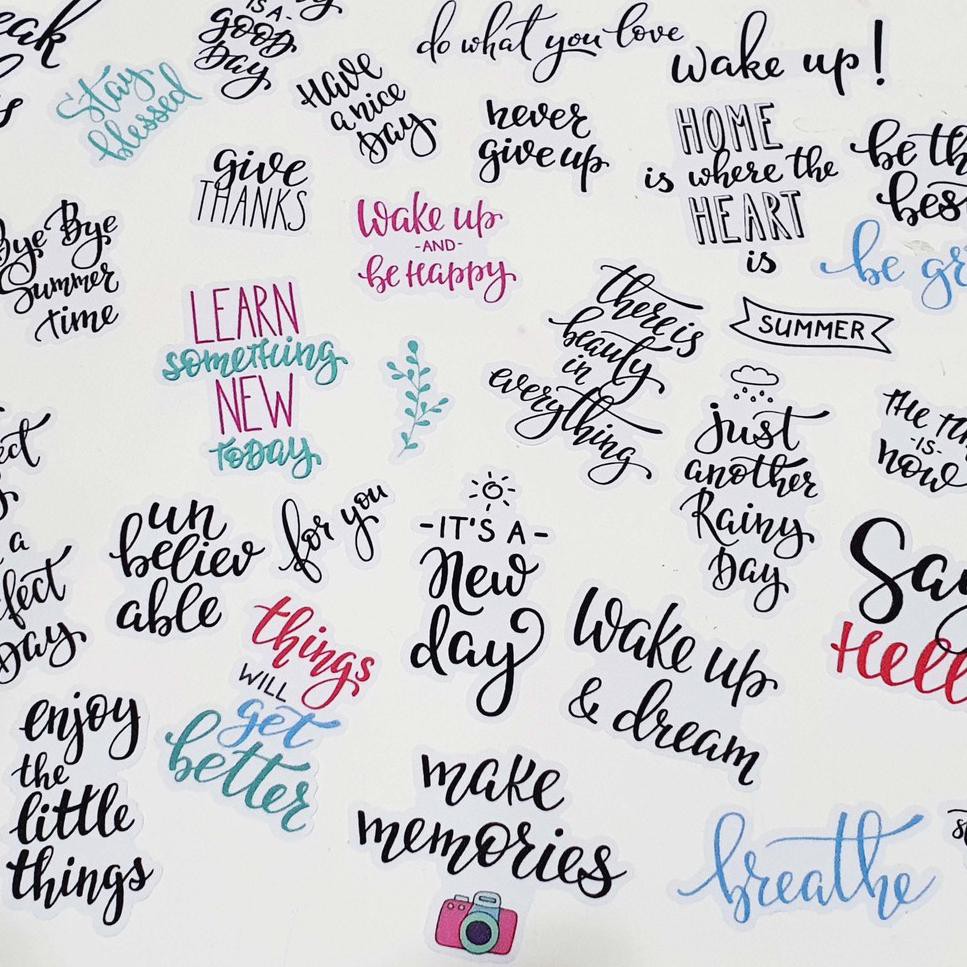 IS A
GOOD
Day
do what you love
wake up!
Stay
blessed
Have
a nice
Day
never
give up
HOME
is where the
HEART
is
be th
bes
give
THANKS
Wake up
-AND-
be Happy
be gr
Bye Bye
Summer
time
LEARN
something
NEW
today
there is
beauty
in
everything
SUMMER
just
another
Rainy
Day
THE
-IS-
now
a
Day
un
believ
able
for you
-IT'S A-
New
day
Wake up
& dream
Say
Hell
things
WILL
get
better
enjoy
the
little
things
make
memories
breathe